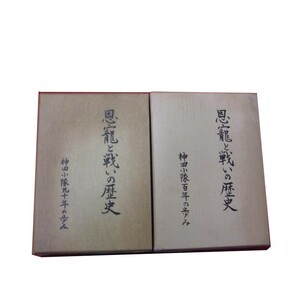 恩寵と戦いの歴史
神田小隊百年の歩み
恩寵と戦いの歴史
神田小隊九十年の歩み